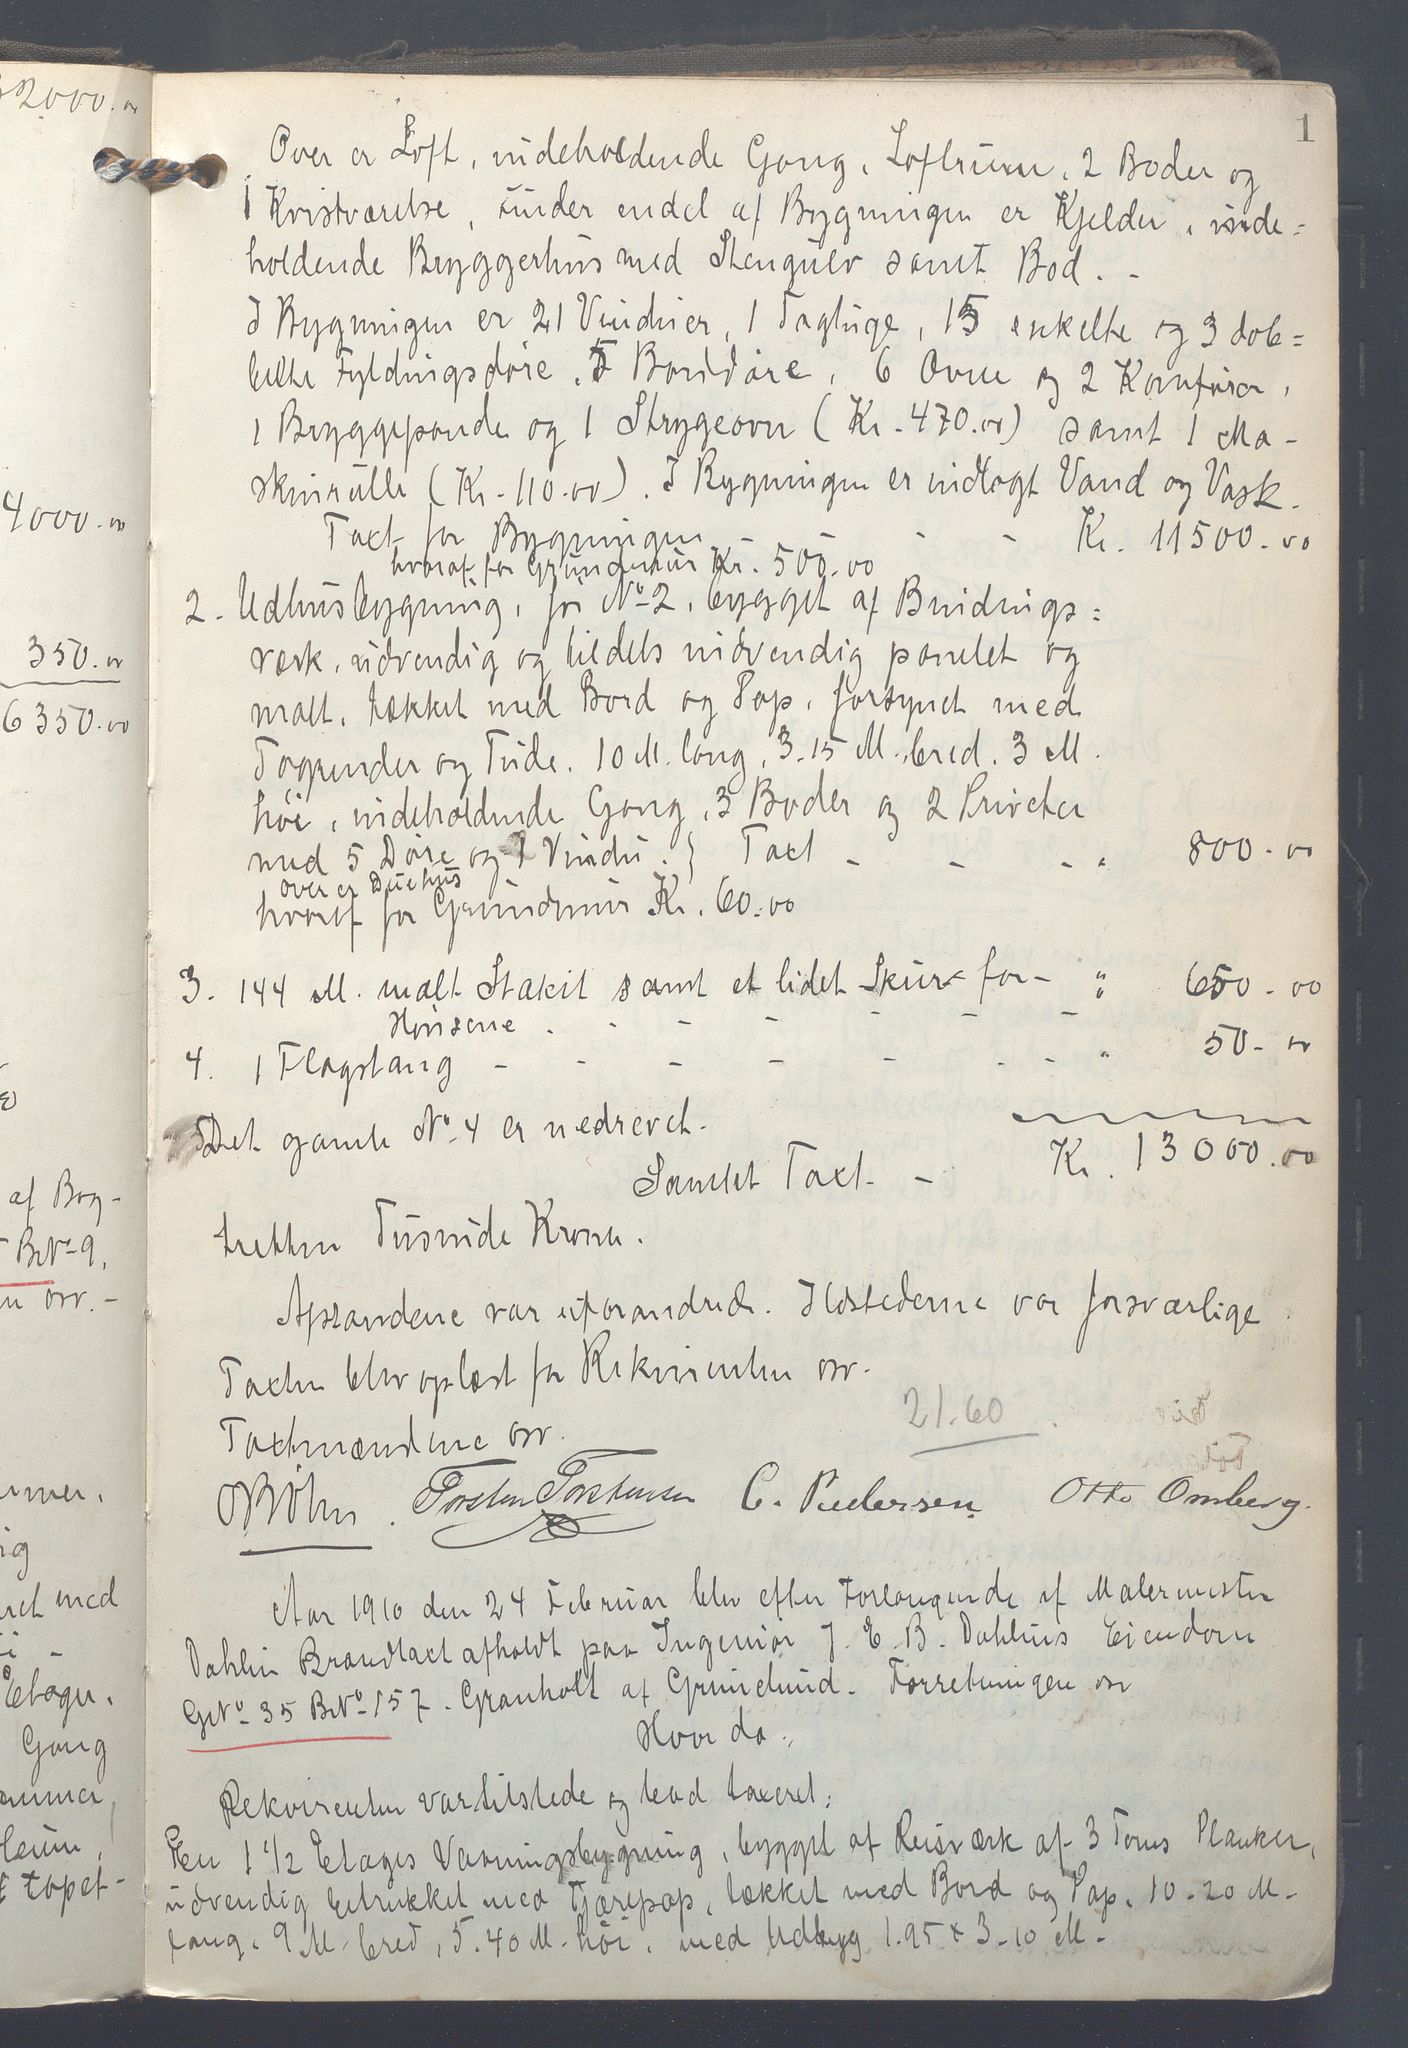 2000.00
4000.00
350.00
6350.00
af Byg-
BrNo 9.
osv.-
Etager.
Gang
tapet-
1
Over er Loft, indeholdende Gang, Loftrum, 2 Boder og
1 Kvistværelse, under endel af Bygningen er Kjelder, inde=
holdende Bryggerhus med Stengulv samt Bod. -
I Bygningen er 21 Vinduer, 1 Tagluge, 15 enkelte og 3 dob=
belte Fyldingsdøre, 5 Borddøre, 6 Ovne og 2 Komfurer,
1 Bryggepande og 1 Strygeovn (Kr. 470.00) samt 1 Ma-
skinrulle (Kr. 110.00). I Bygningen er indlagt Vand og Vask.
Taxt for Bygningen - - - Kr. 11500.00
hvoraf for Grundmur Kr. 500.00
2. Udhusbygning, før No 2, bygget af Bindings=
værk, udvendig og tildels indvendig panelet og
malt, tækket med Bord og Pap, forsynet med
Tagrender og Tude. 10 M. lang, 3.15 M. bred. 3 M.
høi, indeholdende Gang, 3 Boder og 2 Priveter
med 5 Døre og 1 Vindu. } Taxt - - - " 800.00
over er Duehus
hvoraf for Grundmur Kr. 60.00
3. 144 M. malt Stakit samt et lidet Skur for- " 650.00
Hønsene . - - - - - -
4. 1 Flagstang - - - - - - - " 50.00
Det gamle No 4 er nedrevet.
Samlet Taxt - Kr. 13000.00
tretten Tusinde Kroner.
Afstandene var uforandrede. Ildstederne var forsvarlige
Taxten blev oplæst for Rekvirenten osv.
21.60
Taxtmændene osv.
O Böhn. Torsten Torstensen C. Pedersen Otto Omberg.
Aar 1910 den 24 Februar blev efter Forlangende af Malermester
Dahlin Brandtaxt afholdt paa Ingeniør J. E. B. Dahlins Eiendom
GNo 35 BrNo 157. Granholt af Grimelund. Forretningen osv
Hvorda:
Rekvirenten var tilstede og bad taxeret:
En 1 1/2 Etages Vaaningsbygning, bygget af Reisværk af 3 Toms Planker,
udvendig betrukket med Tjærepap, tækket med Bord og Pap. 10.20 M.
lang, 9 M. bred, 5.40 M. høi, med Udbyg 1.95 x 3.10 M.